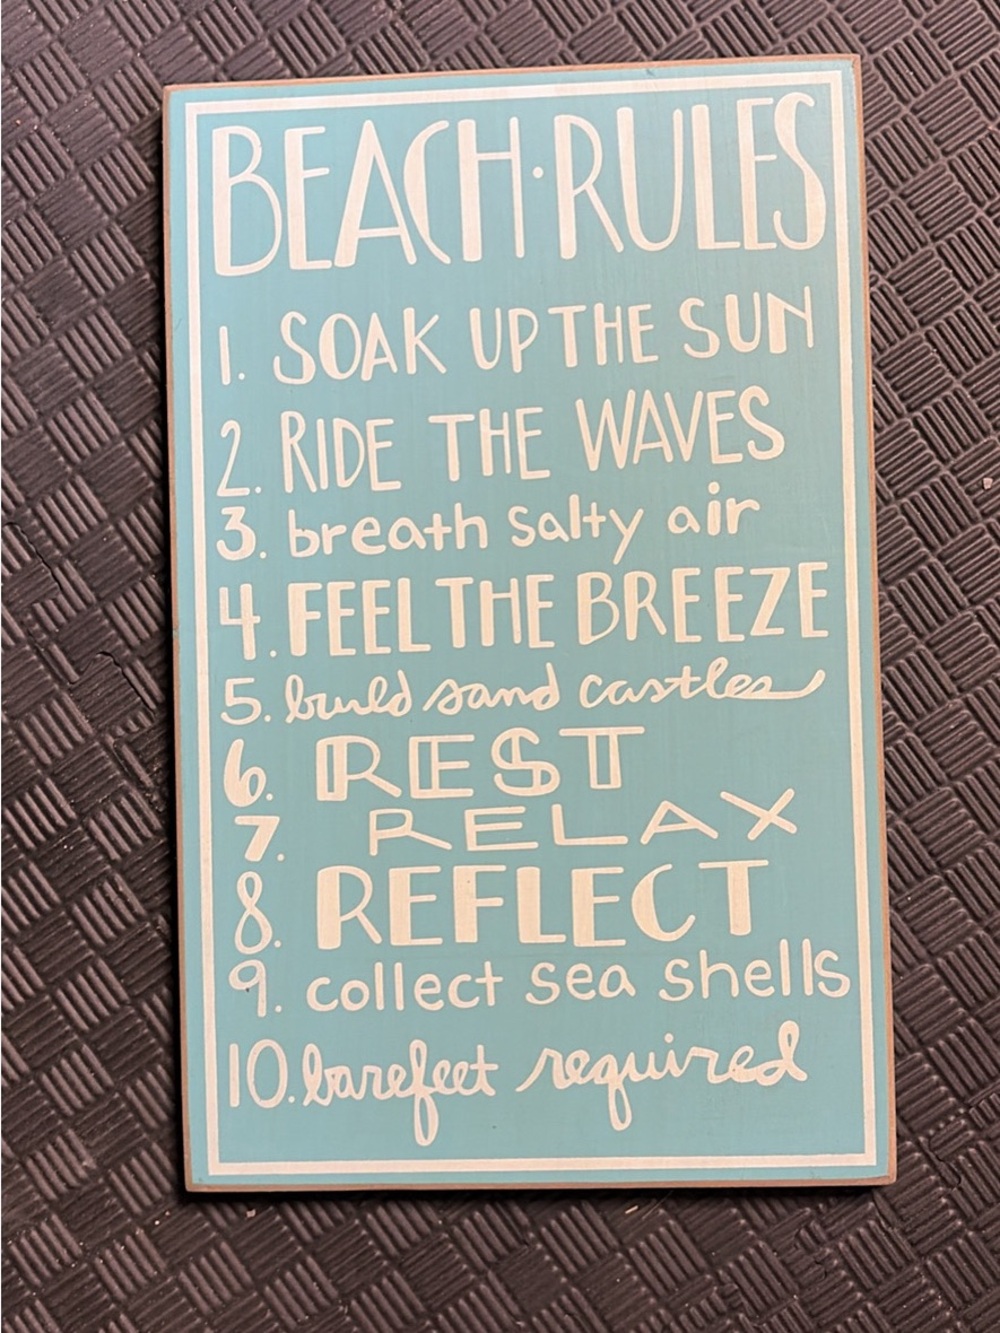 BEACH·RULES
1. SOAK UP THE SUN
2. RIDE THE WAVES
3. breath salty air
4. FEEL THE BREEZE
5. build sand castles
6. REST
7. RELAX
8. REFLECT
9. collect sea shells
10. barefeet required